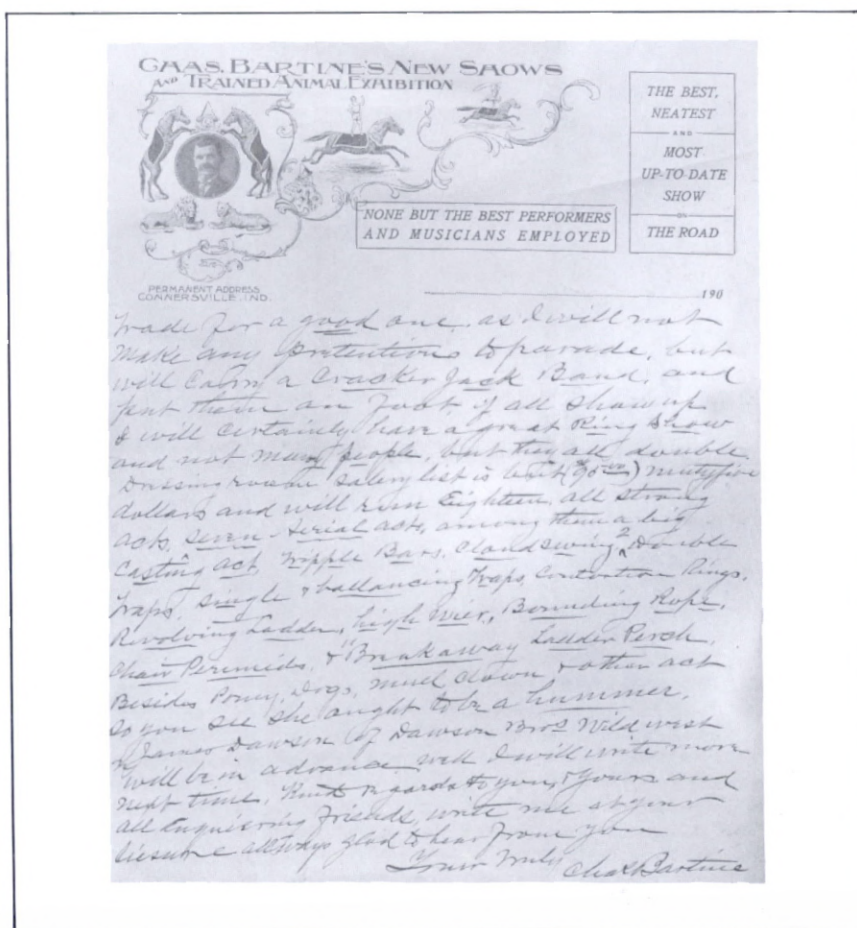 CHAS. BARTINE'S NEW SHOWS
AND TRAINED ANIMAL EXHIBITION
THE BEST,
NEATEST
AND
MOST
UP-TO-DATE
SHOW
ON
THE ROAD
NONE BUT THE BEST PERFORMERS
AND MUSICIANS EMPLOYED
PERMANENT ADDRESS
CONNERSVILLE, IND.
190
trade for a good one. as I will not
make any pretentions to parade, but
will carry a Cracker Jack Band, and
put them on foot, if all show up
I will certainly have a great Ring Show
and not many people, but they all double.
Dressing room salery list is but ($95.00) ninty five
dollars and will run Eighteen, all strong
acts, seven Aerial acts, among them a big
Casting act Tripple Bars, Cloudswing, 2 Double
Traps, single & ballancing Traps, Contortion Rings,
Revolving Ladder, high Wier, Bounding Rope,
Chair Peremids, & "Breakaway Ladder Perch,
Besides Poney, Dogs, Muel, Clown & other act
So you see she aught to be a hummer,
James Dawson of Dawson Bros Wild west
will be in advance well I will write more
next time, Kind regards to you & yours and
all Enquiering friends, write me at your
liesure allways glad to hear from you
Your Truly Chas Bartine